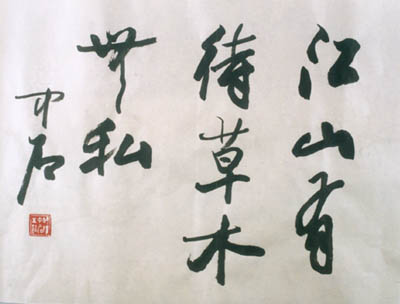 江山有
待草木
無私
中石